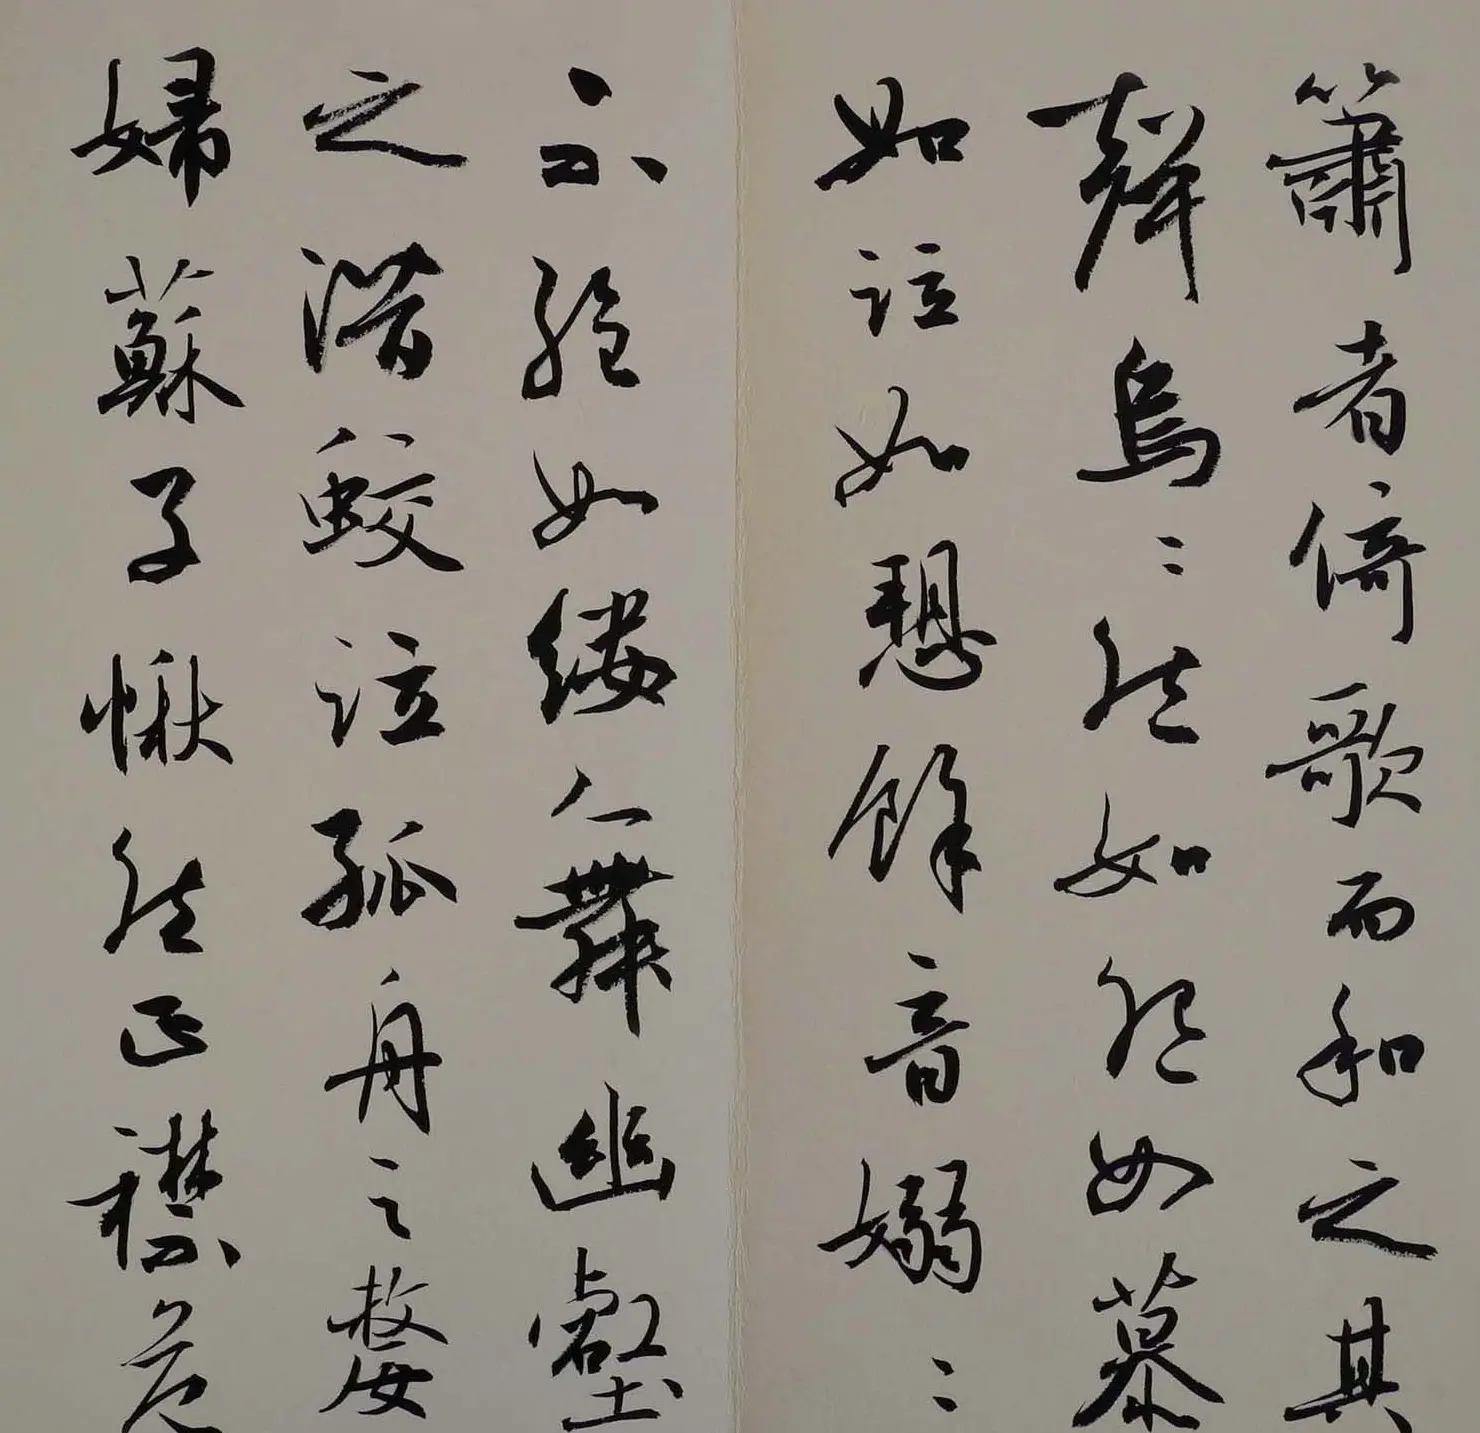 簫者倚歌而和之其
聲烏〻然如怨如慕
如泣如愬餘音嫋〻
不絕如縷舞幽壑
之潛蛟泣孤舟之嫠
婦蘇子愀然正襟危